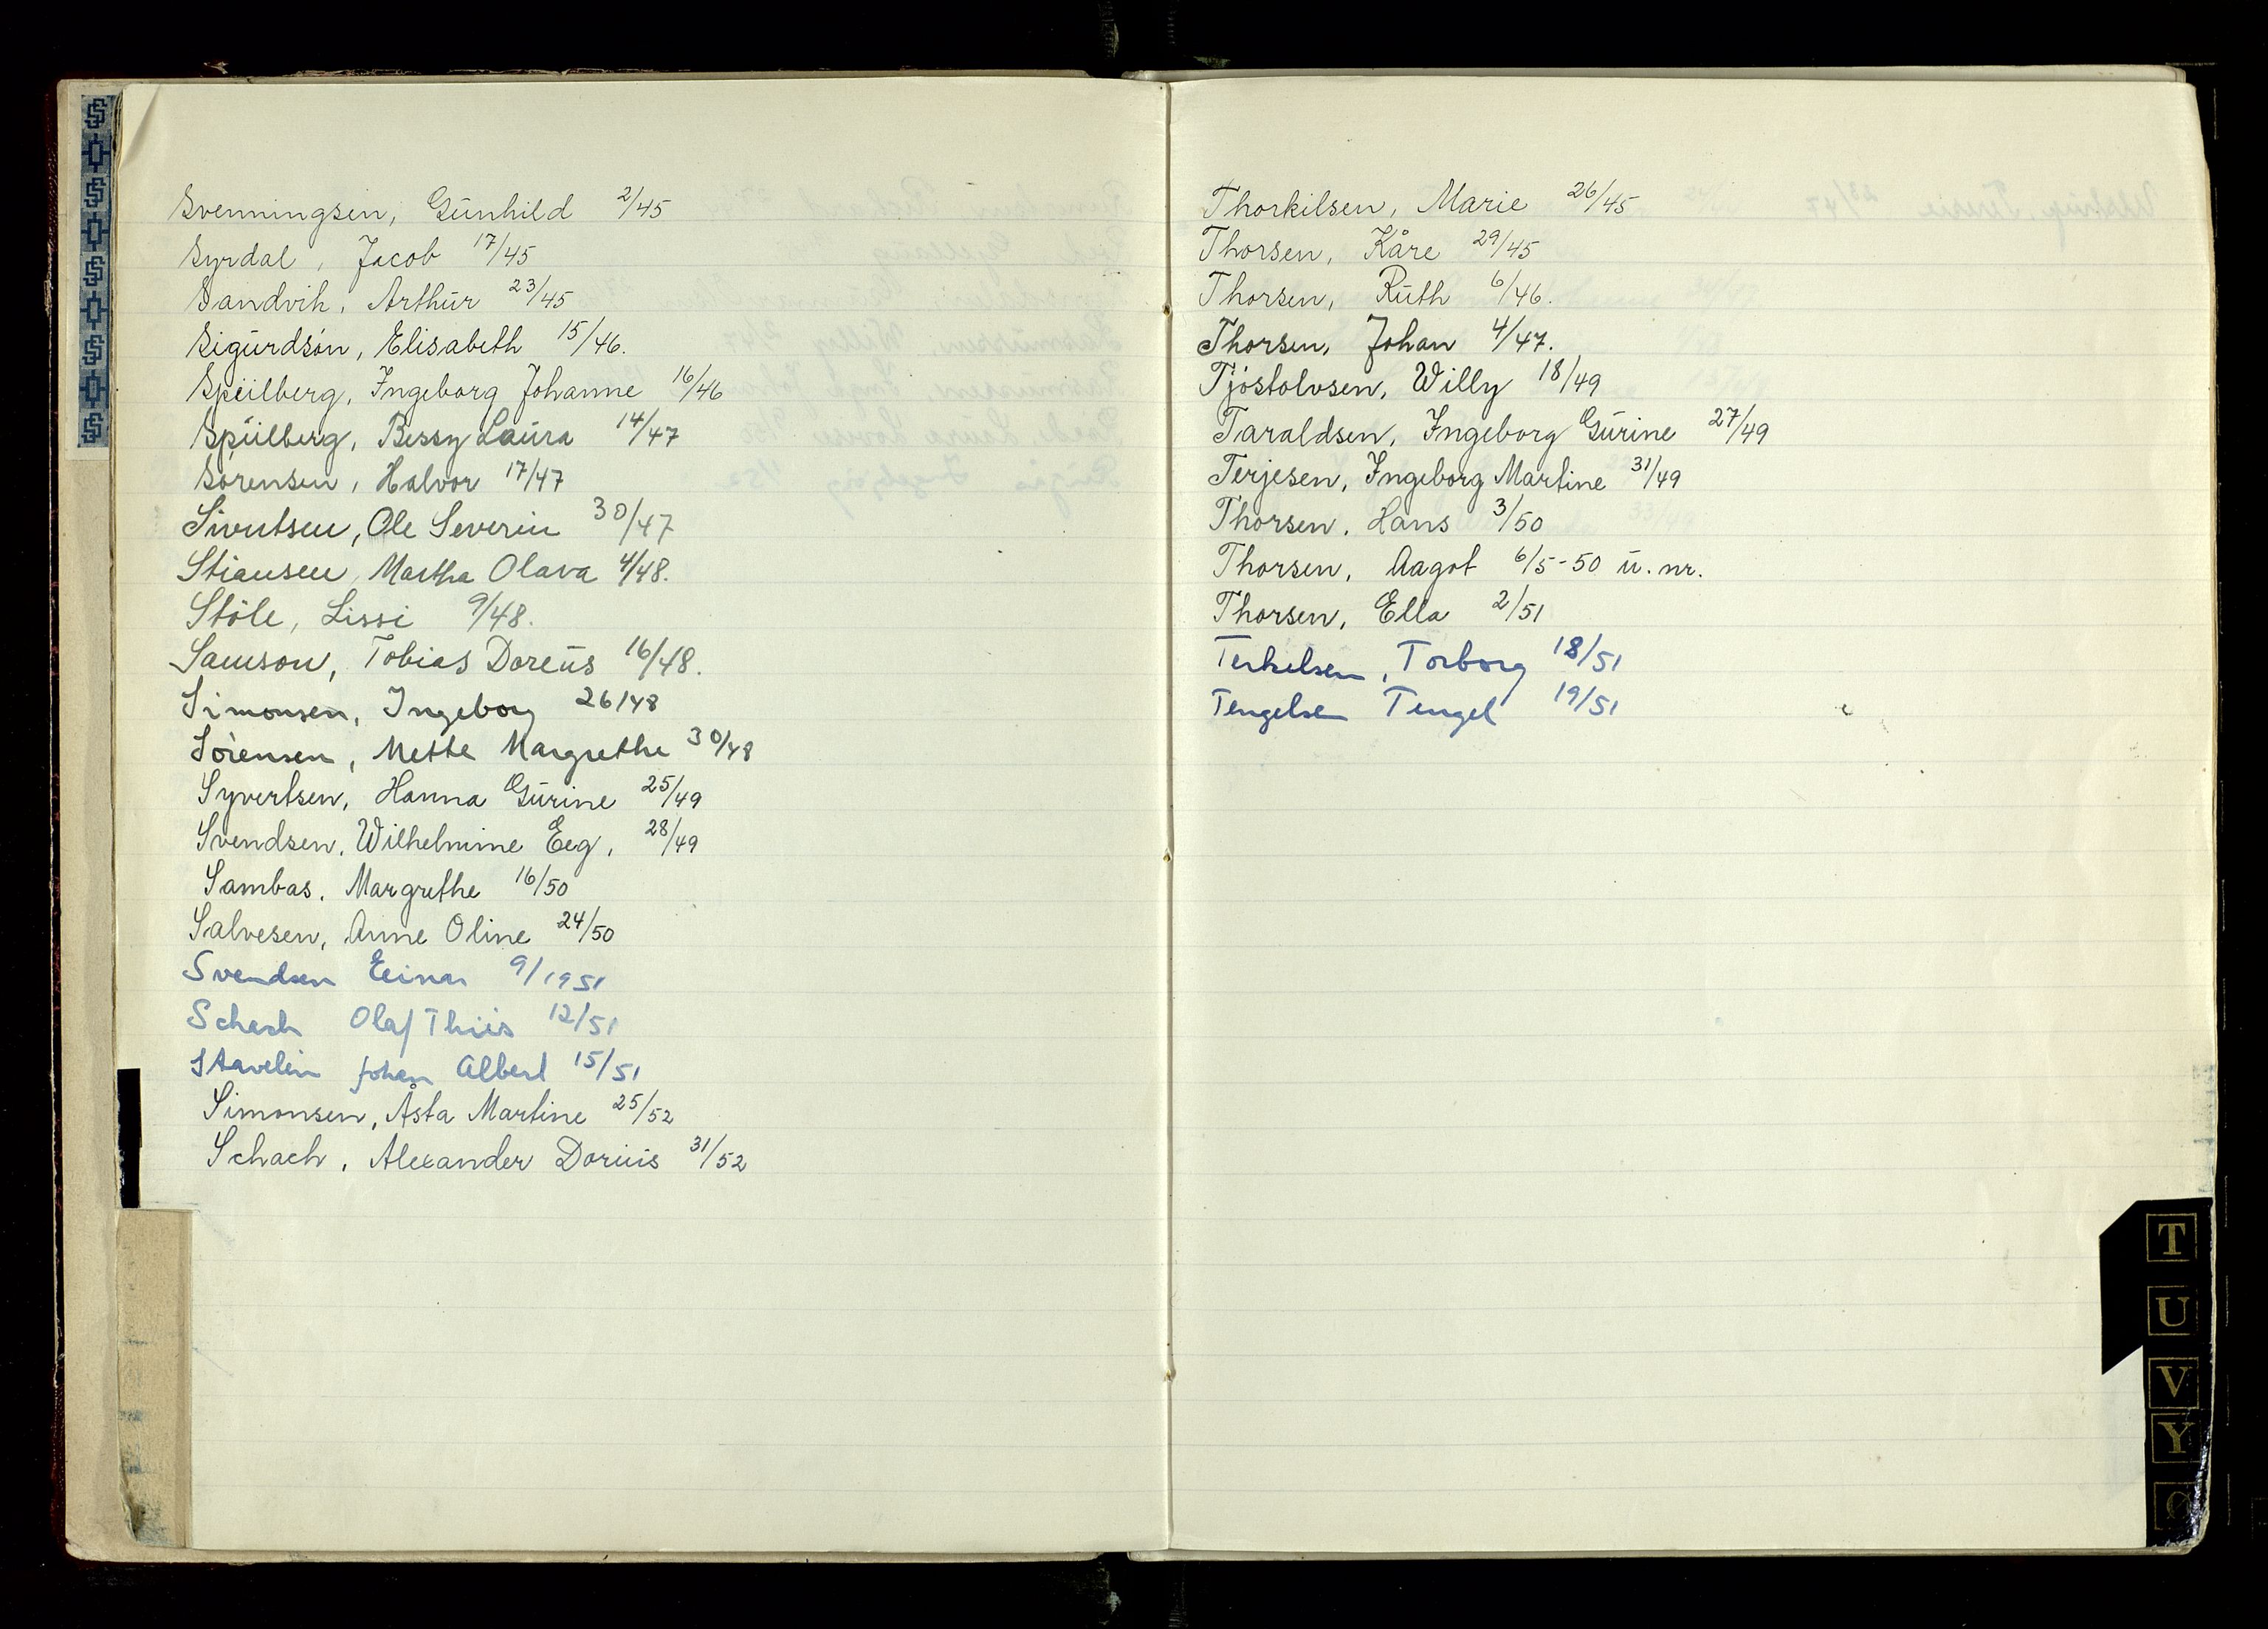 Svenningsen, Gunhild 2/45
Syrdal, Jacob 17/45
Sandvik, Arthur 23/45
Sigurdsön, Elisabeth 15/46.
Spülberg, Ingeborg Johanne 16/46
Spülberg, Bessy Laura 14/47
Sørensen, Halvor 17/47
Sivertsen, Ole Severin 30/47
Stiansen, Martha Olava 4/48.
Støle, Lissi 9/48.
Samson, Tobias Doreus 16/48.
Simonsen, Ingeborg 26/48
Sørensen, Mette Margrethe 30/48
Syvertsen, Hanna Gurine 25/49
Svendsen, Wilhelmine Eeg, 28/49
Sambas, Margrethe 16/50
Salvesen, Anne Oline 24/50
Svendsen Einar 9/1951
Schach Olaf Thiis 12/51
Stavelin Johan Albert 15/51
Simonsen, Åsta Martine 25/52
Schach, Alexander Dorius 31/52
Thorkilsen, Marie 26/45
Thorsen, Kåre 29/45
Thorsen, Ruth 6/46.
Thorsen, Johan 4/47.
Tjøstolvsen, Willy 18/49
Taraldsen, Ingeborg Gurine 27/49
Terjesen, Ingeborg Martine 31/49
Thorsen, Hans 3/50
Thorsen, Aagot 6/5-50 u. nr.
Thorsen, Ella 2/51
Terkelsen, Torborg 18/51
Tengelsen Tengel 19/51
T
U
V
Y